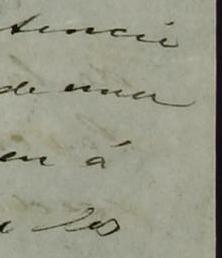 tencia
de una
en á
los